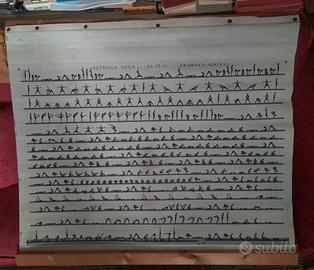 ASTANGA YOGA AS IT IS PRIMARY SERIES
subito